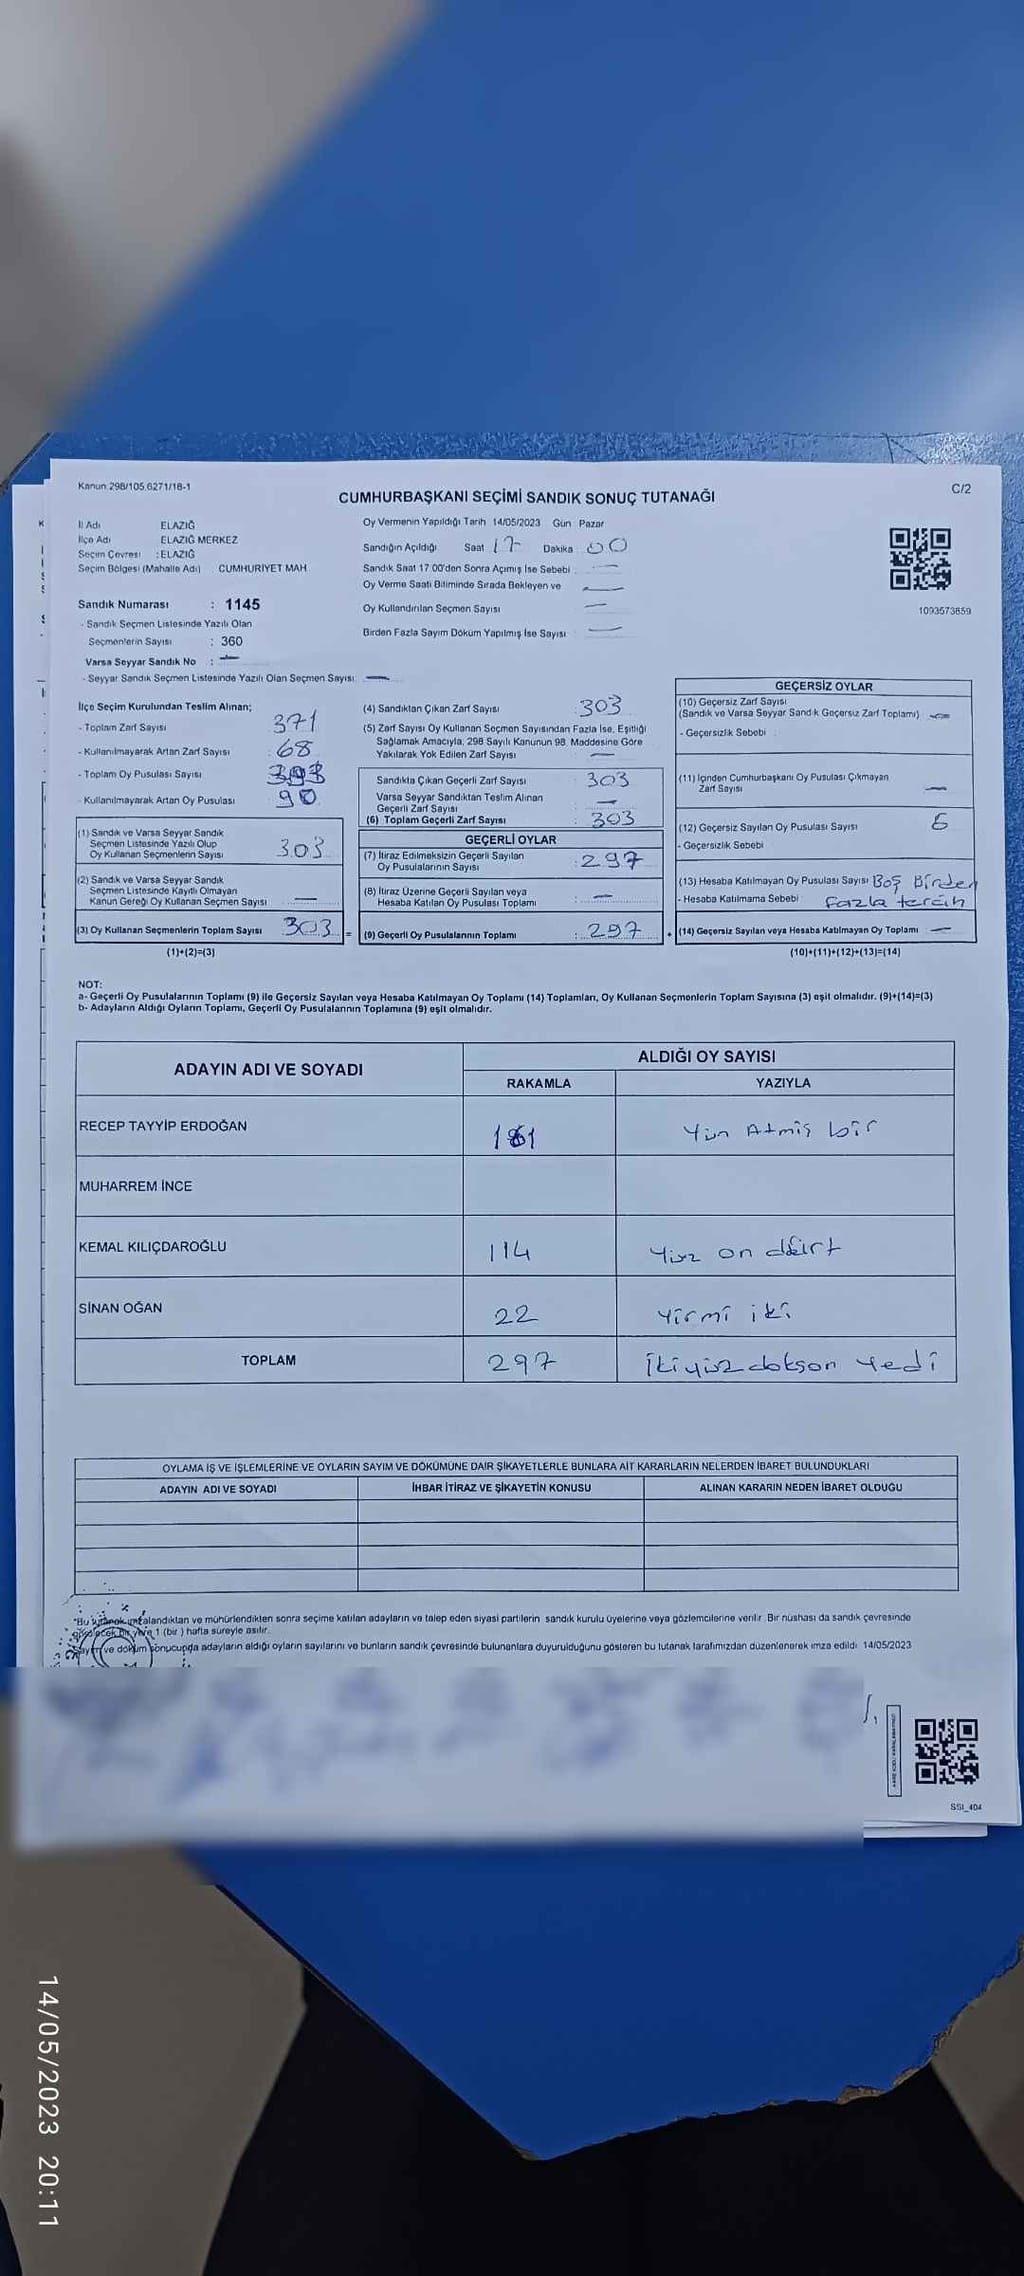 Kanun:298/105,6271/18-1
C/2
CUMHURBAŞKANI SEÇİMİ SANDIK SONUÇ TUTANAĞI
İl Adı ELAZIĞ
İlçe Adı ELAZIĞ MERKEZ
Seçim Çevresi : ELAZIĞ
Seçim Bölgesi (Mahalle Adı) CUMHURİYET MAH
Sandık Numarası : 1145
- Sandık Seçmen Listesinde Yazılı Olan
Seçmenlerin Sayısı : 360
Varsa Seyyar Sandık No : —
- Seyyar Sandık Seçmen Listesinde Yazılı Olan Seçmen Sayısı: —
Oy Vermenin Yapıldığı Tarih 14/05/2023 Gün Pazar
Sandığın Açıldığı Saat 17 Dakika 00
Sandık Saat 17:00'den Sonra Açımış İse Sebebi —
Oy Verme Saati Bitiminde Sırada Bekleyen ve —
Oy Kullandırılan Seçmen Sayısı —
Birden Fazla Sayım Döküm Yapılmış İse Sayısı —
1093573859
İlçe Seçim Kurulundan Teslim Alınan;
- Toplam Zarf Sayısı 371
- Kullanılmayarak Artan Zarf Sayısı : 68
- Toplam Oy Pusulası Sayısı 393
- Kullanılmayarak Artan Oy Pusulası 90
(1) Sandık ve Varsa Seyyar Sandık
Seçmen Listesinde Yazılı Olup
Oy Kullanan Seçmenlerin Sayısı : 303
(2) Sandık ve Varsa Seyyar Sandık
Seçmen Listesinde Kayıtlı Olmayan
Kanun Gereği Oy Kullanan Seçmen Sayısı —
(3) Oy Kullanan Seçmenlerin Toplam Sayısı 303 =
(1)+(2)=(3)
(4) Sandıktan Çıkan Zarf Sayısı : 303
(5) Zarf Sayısı Oy Kullanan Seçmen Sayısından Fazla İse, Eşitliği
Sağlamak Amacıyla, 298 Sayılı Kanunun 98. Maddesine Göre
Yakılarak Yok Edilen Zarf Sayısı : —
Sandıkta Çıkan Geçerli Zarf Sayısı : 303
Varsa Seyyar Sandıktan Teslim Alınan
Geçerli Zarf Sayısı : —
(6) Toplam Geçerli Zarf Sayısı : 303
GEÇERLİ OYLAR
(7) İtiraz Edilmeksizin Geçerli Sayılan
Oy Pusulalarının Sayısı : 297
(8) İtiraz Üzerine Geçerli Sayılan veya
Hesaba Katılan Oy Pusulası Toplamı : —
(9) Geçerli Oy Pusulalarının Toplamı : 297 +
GEÇERSİZ OYLAR
(10) Geçersiz Zarf Sayısı
(Sandık ve Varsa Seyyar Sandık Geçersiz Zarf Toplamı) —
- Geçersizlik Sebebi :
(11) İçinden Cumhurbaşkanı Oy Pusulası Çıkmayan
Zarf Sayısı —
(12) Geçersiz Sayılan Oy Pusulası Sayısı
- Geçersizlik Sebebi
(13) Hesaba Katılmayan Oy Pusulası Sayısı Boş Birden
- Hesaba Katılmama Sebebi : fazla tercih
(14) Geçersiz Sayılan veya Hesaba Katılmayan Oy Toplamı —
(10)+(11)+(12)+(13)=(14)
NOT:
a- Geçerli Oy Pusulalarının Toplamı (9) ile Geçersiz Sayılan veya Hesaba Katılmayan Oy Toplamı (14) Toplamları, Oy Kullanan Seçmenlerin Toplam Sayısına (3) eşit olmalıdır. (9)+(14)=(3)
b- Adayların Aldığı Oyların Toplamı, Geçerli Oy Pusulalarının Toplamına (9) eşit olmalıdır.
ADAYIN ADI VE SOYADI
ALDIĞI OY SAYISI
RAKAMLA YAZIYLA
RECEP TAYYİP ERDOĞAN 161 Yüz Atmış bir
MUHARREM İNCE
KEMAL KILIÇDAROĞLU 114 Yüz on dört
SİNAN OĞAN 22 Yirmi iki
TOPLAM 297 İkiyüz dokson Yedi
OYLAMA İŞ VE İŞLEMLERİNE VE OYLARIN SAYIM VE DÖKÜMÜNE DAİR ŞİKAYETLERLE BUNLARA AİT KARARLARIN NELERDEN İBARET BULUNDUKLARI
ADAYIN ADI VE SOYADI İHBAR İTİRAZ VE ŞİKAYETİN KONUSU ALINAN KARARIN NEDEN İBARET OLDUĞU
"Bu tutanak imzalandıktan ve mühürlendikten sonra seçime katılan adayların ve talep eden siyasi partilerin sandık kurulu üyelerine veya gözlemcilerine verilir. Bir nüshası da sandık çevresinde
bir yere 1 (bir) hafta süreyle asılır.
Sayım ve döküm sonucunda adayların aldığı oyların sayılarını ve bunların sandık çevresinde bulunanlara duyurulduğunu gösteren bu tutanak tarafımızdan düzenlenerek imza edildi 14/05/2023
SSI_404
14/05/2023 20:11